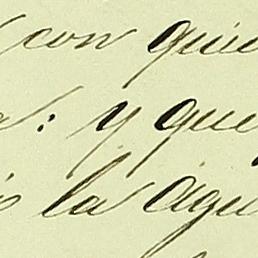 con quie
: y que
la agu